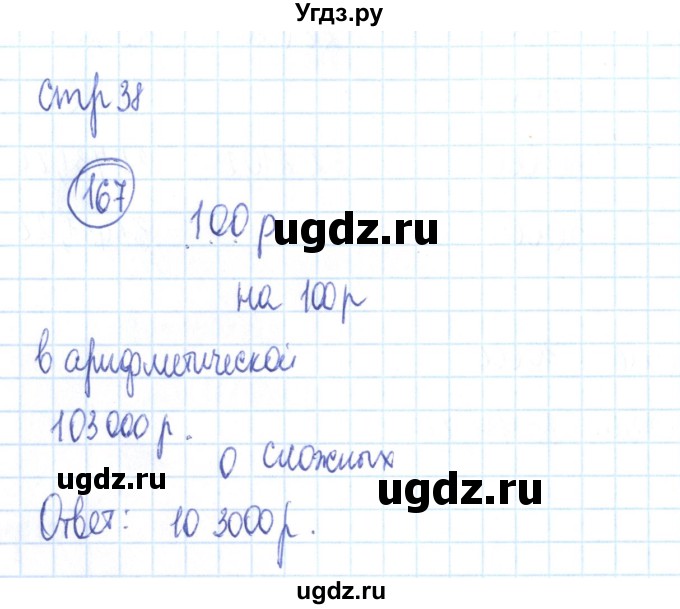 Угдз.ру
стр 38
167
100 р
ugdz.ru
ugdz.ru
на 100 р
в арифметической
103 000 р.
о сложных
ugdz.ru
ugdz.ru
Ответ: 10 3000 р.
ugdz.ru